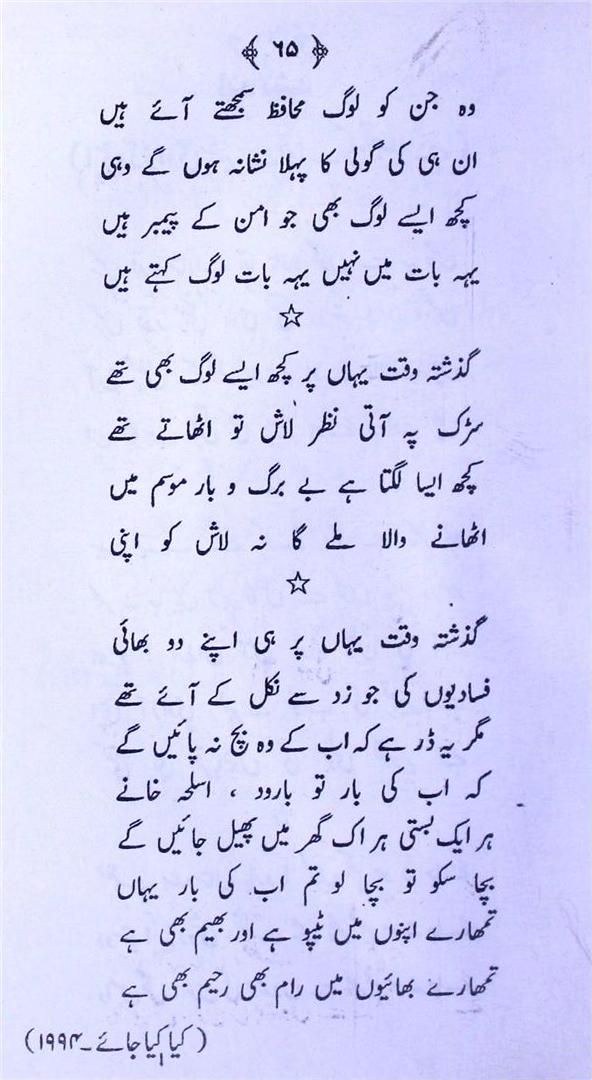 ﴿ ۶۵ ﴾
وہ جن کو لوگ محافظ سمجھتے آئے ہیں
ان ہی کی گولی کا پہلا نشانہ ہوں گے وہی
کچھ ایسے لوگ بھی جو امن کے پیمبر ہیں
یہہ بات میں نہیں یہہ بات لوگ کہتے ہیں
☆
گذشتہ وقت یہاں پر کچھ ایسے لوگ بھی تھے
سڑک پہ آتی نظر لاش تو اٹھاتے تھے
کچھ ایسا لگتا ہے بے برگ و بار موسم میں
اٹھانے والا ملے گا نہ لاش کو اپنی
☆
گذشتہ وقت یہاں پر ہی اپنے دو بھائی
فسادیوں کی جو زد سے نکل کے آئے تھے
مگر یہ ڈر ہے کہ اب کے وہ بچ نہ پائیں گے
کہ اب کی بار تو بارود ، اسلحہ خانے
ہر ایک بستی ہر اک گھر میں پھیل جائیں گے
بچا سکو تو بچا لو تم اب کی بار یہاں
تمھارے اپنوں میں ٹیپو ہے اور بھیم بھی ہے
تمھارے بھائیوں میں رام بھی رحیم بھی ہے
( کیا کیا جائے۔۱۹۹۴)